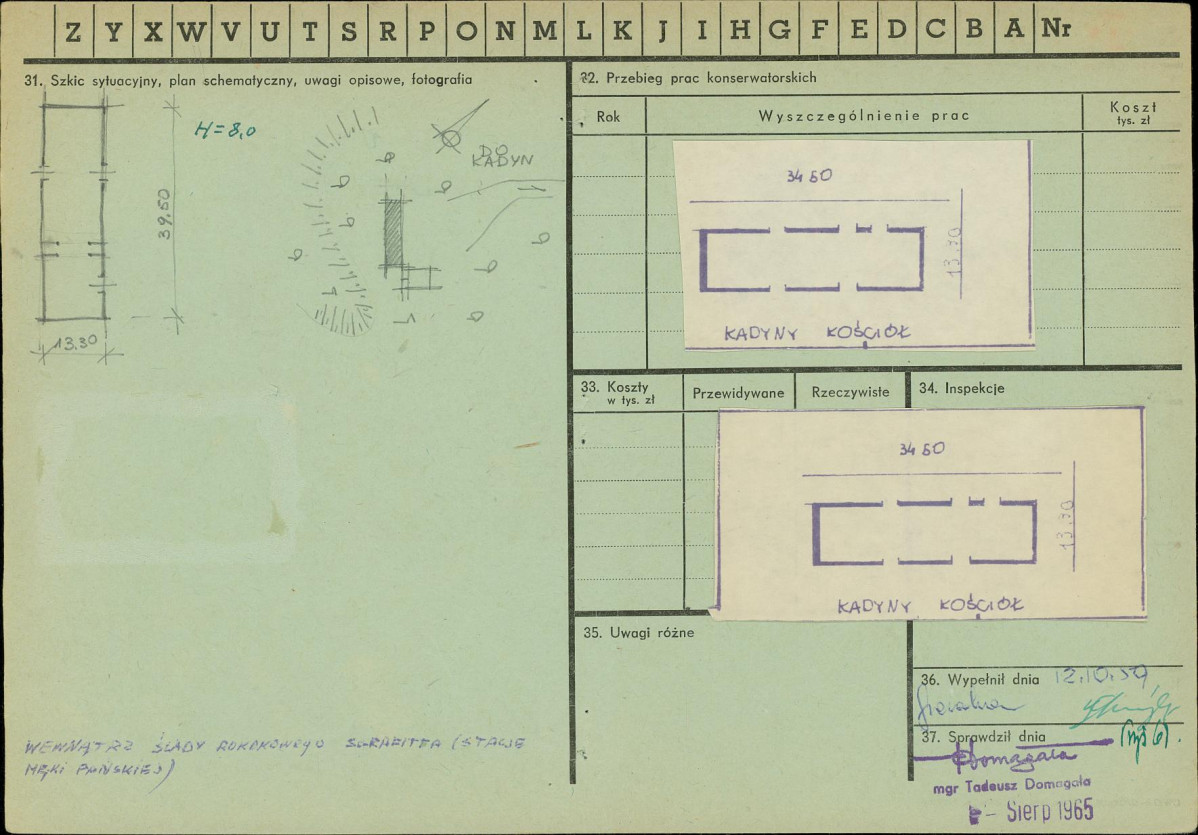 Z Y X W V U T S R P O N M L K J I H G F E D C B A Nr
31. Szkic sytuacyjny, plan schematyczny, uwagi opisowe, fotografia
H = 8,0
DO
KADYN
39.50
13.30
32. Przebieg prac konserwatorskich
Rok
Wyszczególnienie prac
Koszt
tys. zł
34 50
13.70
KADYNY KOŚCIÓŁ
33. Koszty
w tys. zł
Przewidywane
Rzeczywiste
34. Inspekcje
34 50
13.70
KADYNY KOŚCIÓŁ
35. Uwagi różne
36. Wypełnił dnia 12.10.59,
37. Sprawdził dnia
Domagała
mgr Tadeusz Domagała
Sierp 1965
WEWNĄTRZ ŚLADY ROKOKOWEGO SGRAFITTA (STACJE
MĘKI PAŃSKIEJ)